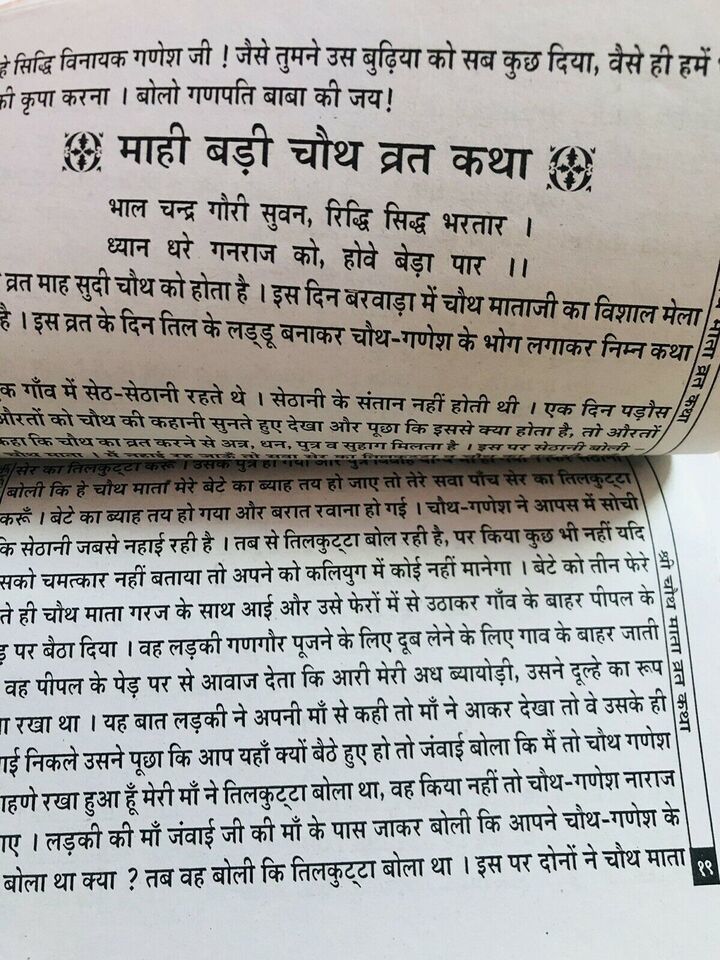 हे सिद्धि विनायक गणेश जी ! जैसे तुमने उस बुढ़िया को सब कुछ दिया, वैसे ही हमें
की कृपा करना । बोलो गणपति बाबा की जय!
माही बड़ी चौथ व्रत कथा
भाल चन्द्र गौरी सुवन, रिद्धि सिद्ध भरतार ।
ध्यान धरे गनराज को, होवे बेड़ा पार ।।
व्रत माह सुदी चौथ को होता है । इस दिन बरवाड़ा में चौथ माताजी का विशाल मेला
है । इस व्रत के दिन तिल के लड्डू बनाकर चौथ-गणेश के भोग लगाकर निम्न कथा
क गाँव में सेठ-सेठानी रहते थे । सेठानी के संतान नहीं होती थी । एक दिन पड़ौस
औरतों को चौथ की कहानी सुनते हुए देखा और पूछा कि इससे क्या होता है, तो औरतों
कहा कि चौथ का व्रत करने से अन्न, धन, पुत्र व सुहाग मिलता है । इस पर सेठानी बोली -
माता व्रत कथा
की सेर का तिलकुट्टा करू । उसके पुत्र हो गया और
बोली कि हे चौथ माता मेरे बेटे का ब्याह तय हो जाए तो तेरे सवा पाँच सेर का तिलकुट्टा
करूँ । बेटे का ब्याह तय हो गया और बरात रवाना हो गई । चौथ-गणेश ने आपस में सोची
कि सेठानी जबसे नहाई रही है । तब से तिलकुट्टा बोल रही है, पर किया कुछ भी नहीं यदि
सको चमत्कार नहीं बताया तो अपने को कलियुग में कोई नहीं मानेगा । बेटे को तीन फेरे
ते ही चौथ माता गरज के साथ आई और उसे फेरों में से उठाकर गाँव के बाहर पीपल के
ड़ पर बैठा दिया । वह लड़की गणगौर पूजने के लिए दूब लेने के लिए गाव के बाहर जाती
वह पीपल के पेड़ पर से आवाज देता कि आरी मेरी अध ब्यायोड़ी, उसने दूल्हे का रूप
ना रखा था । यह बात लड़की ने अपनी माँ से कही तो माँ ने आकर देखा तो वे उसके ही
गई निकले उसने पूछा कि आप यहाँ क्यों बैठे हुए हो तो जंवाई बोला कि मैं तो चौथ गणेश
गहणे रखा हुआ हूँ मेरी माँ ने तिलकुट्टा बोला था, वह किया नहीं तो चौथ-गणेश नाराज
गए । लड़की की माँ जंवाई जी की माँ के पास जाकर बोली कि आपने चौथ-गणेश के
बोला था क्या ? तब वह बोली कि तिलकुट्टा बोला था । इस पर दोनों ने चौथ माता
श्री चौथ माता व्रत कथा
१९